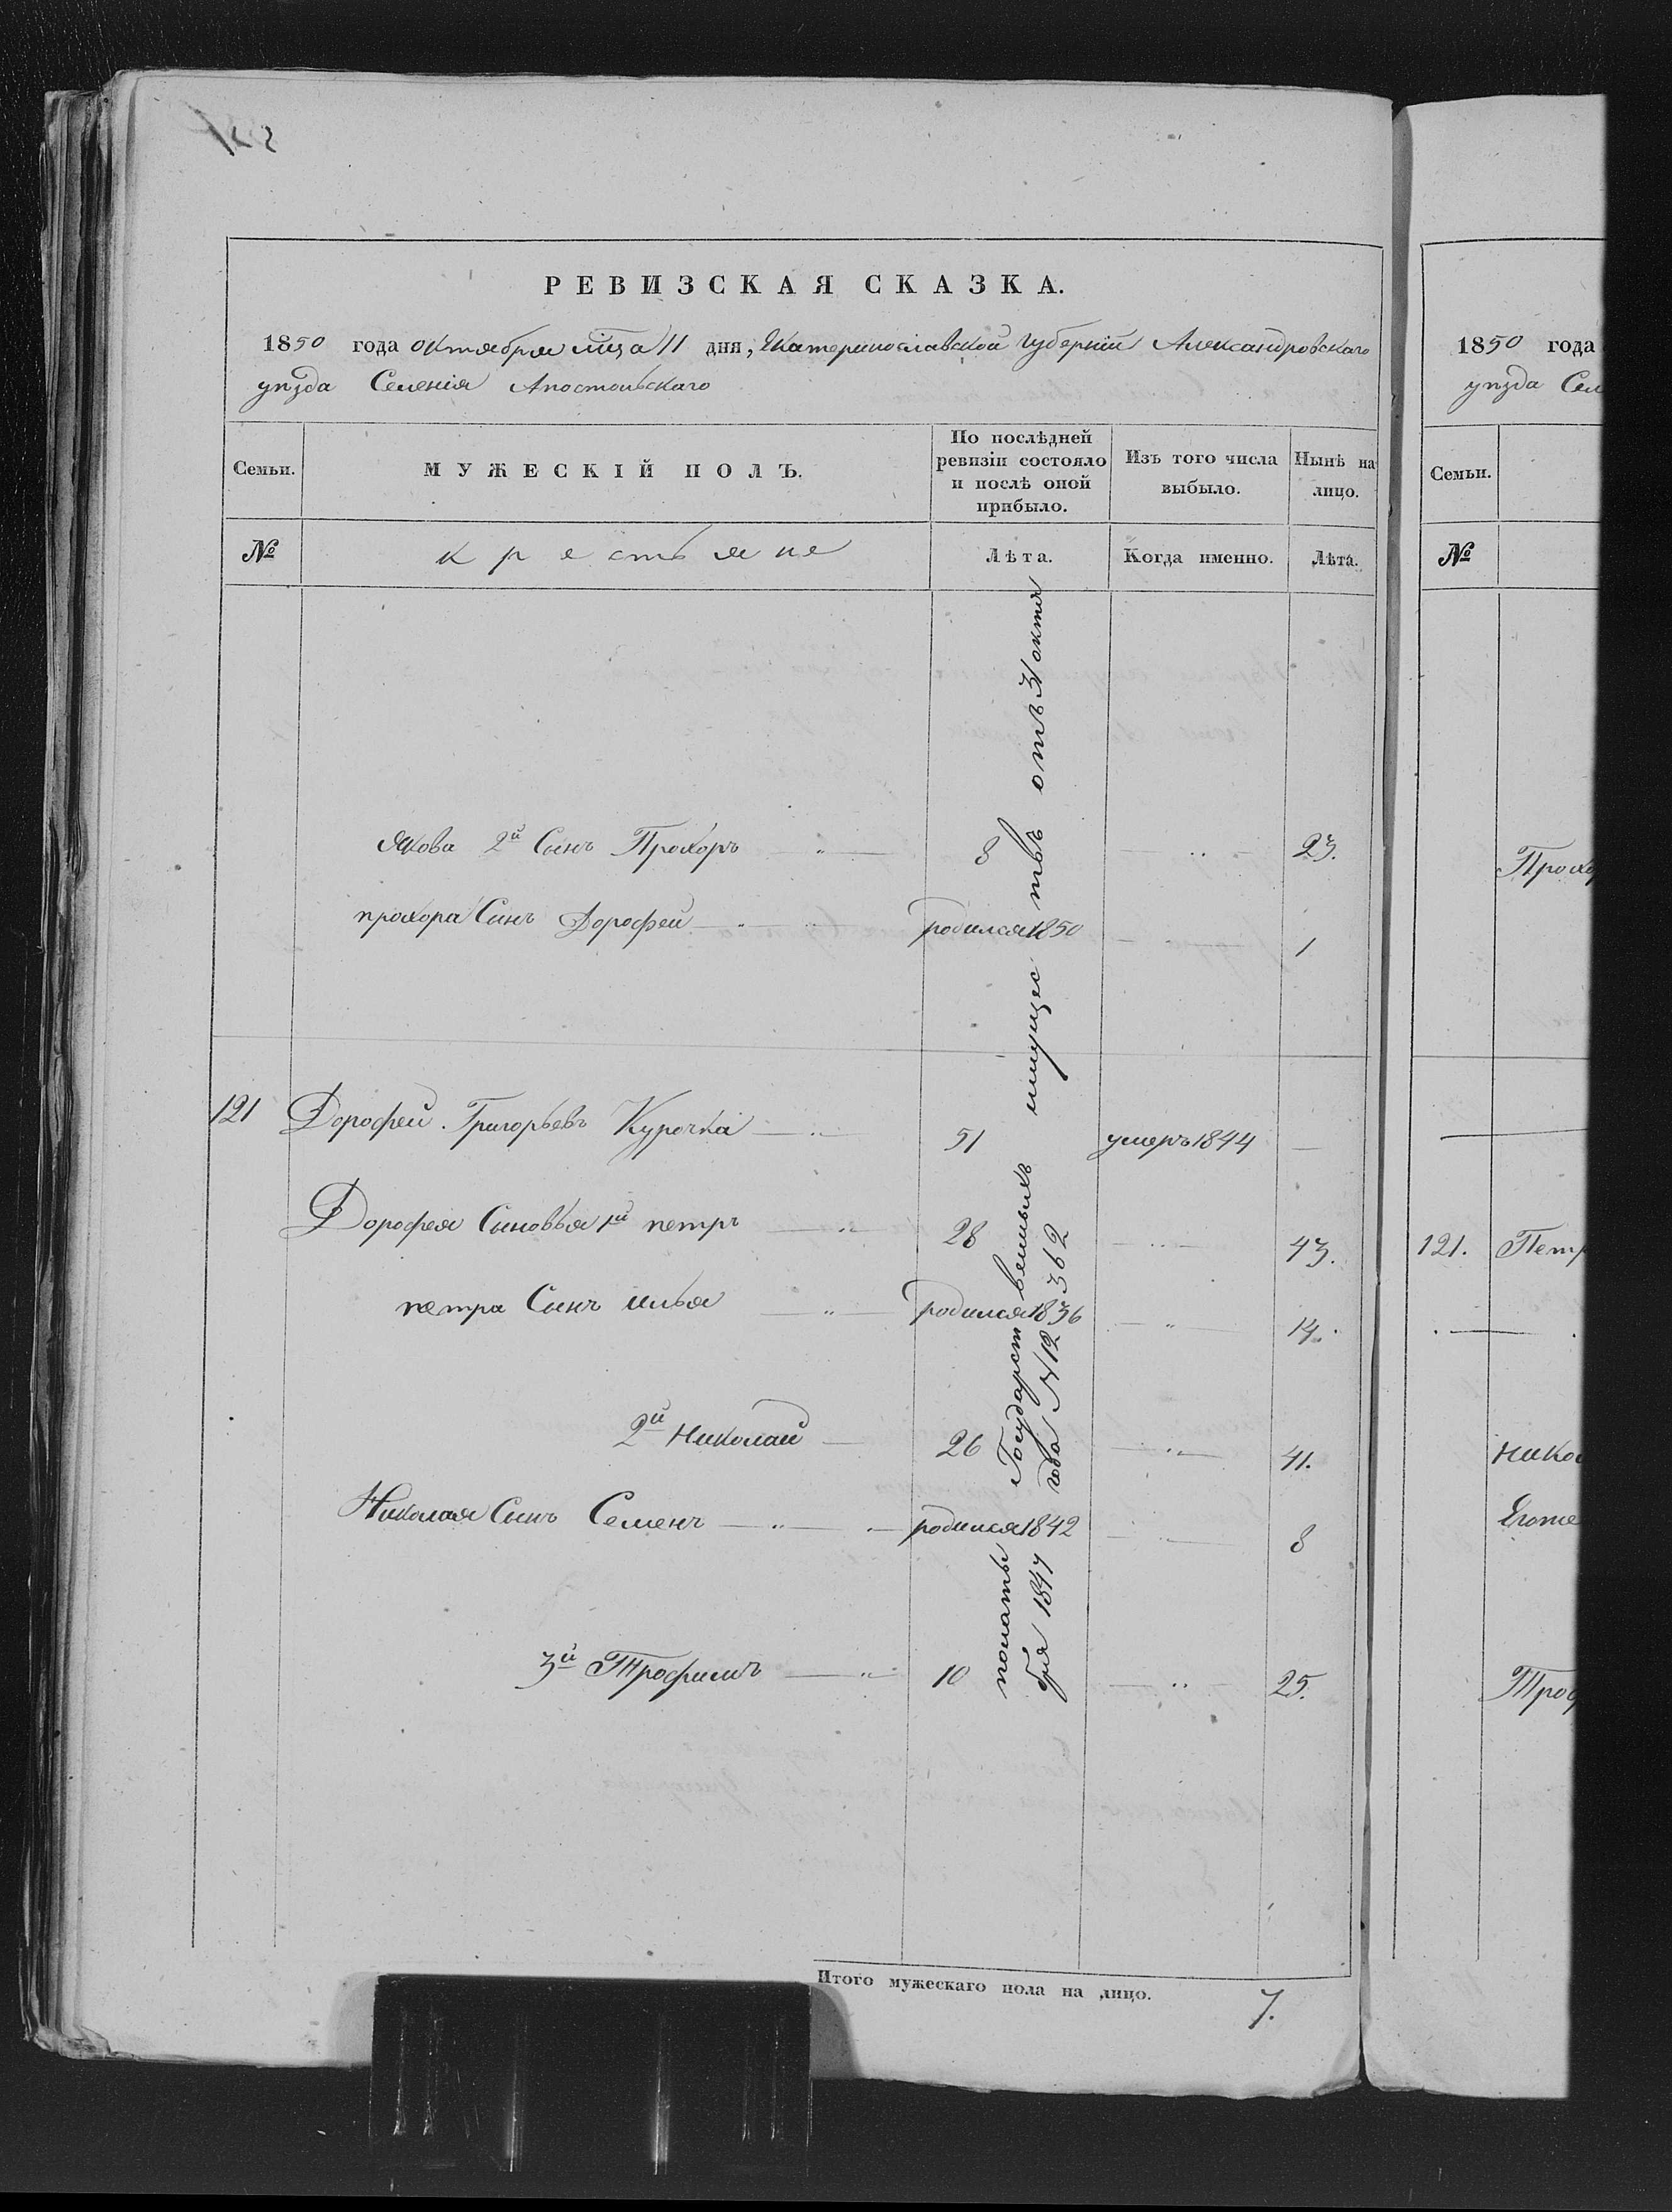 РЕВИЗСКАЯ СКАЗКА.
1850 года октября мца 11 дня, Екатеринославской губерніи Александровскаго
уѣзда Селенія Апостольскаго
Семьи.
МУЖЕСКІЙ ПОЛЪ.
По послѣдней ревизіи состояло и послѣ оной прибыло.
Изъ того числа выбыло.
Нынѣ на лицо.
№ крестьяне Лѣта. Когда именно. Лѣта.
Якова 2й Сынъ Прохоръ — „ — 8 — „ — 23.
прохора Сынъ Дорофей — „ родился 1850 — „ — 1
121 Дорофей Григорьевъ Курочка — „ 51 умеръ 1844 —
Дорофея Сыновья 1й петръ — „ — 28 — „ — 43.
петра Сынъ илья — „ — родился 1836 — „ — 14.
2й Николай — 26 — „ — 41.
Николая Сынъ Семенъ — „ — родился 1842 — 8
3й Трофимъ — „ 10 — „ — 25.
палаты Государственныхъ имуществъ отъ 31 октя
бря 1847 года N 12362
Итого мужескаго пола на лицо. 7.
1850 года
уѣзда Сел
Семьи.
№
Прохо
121. Петр
Нико
Егоже
Троф